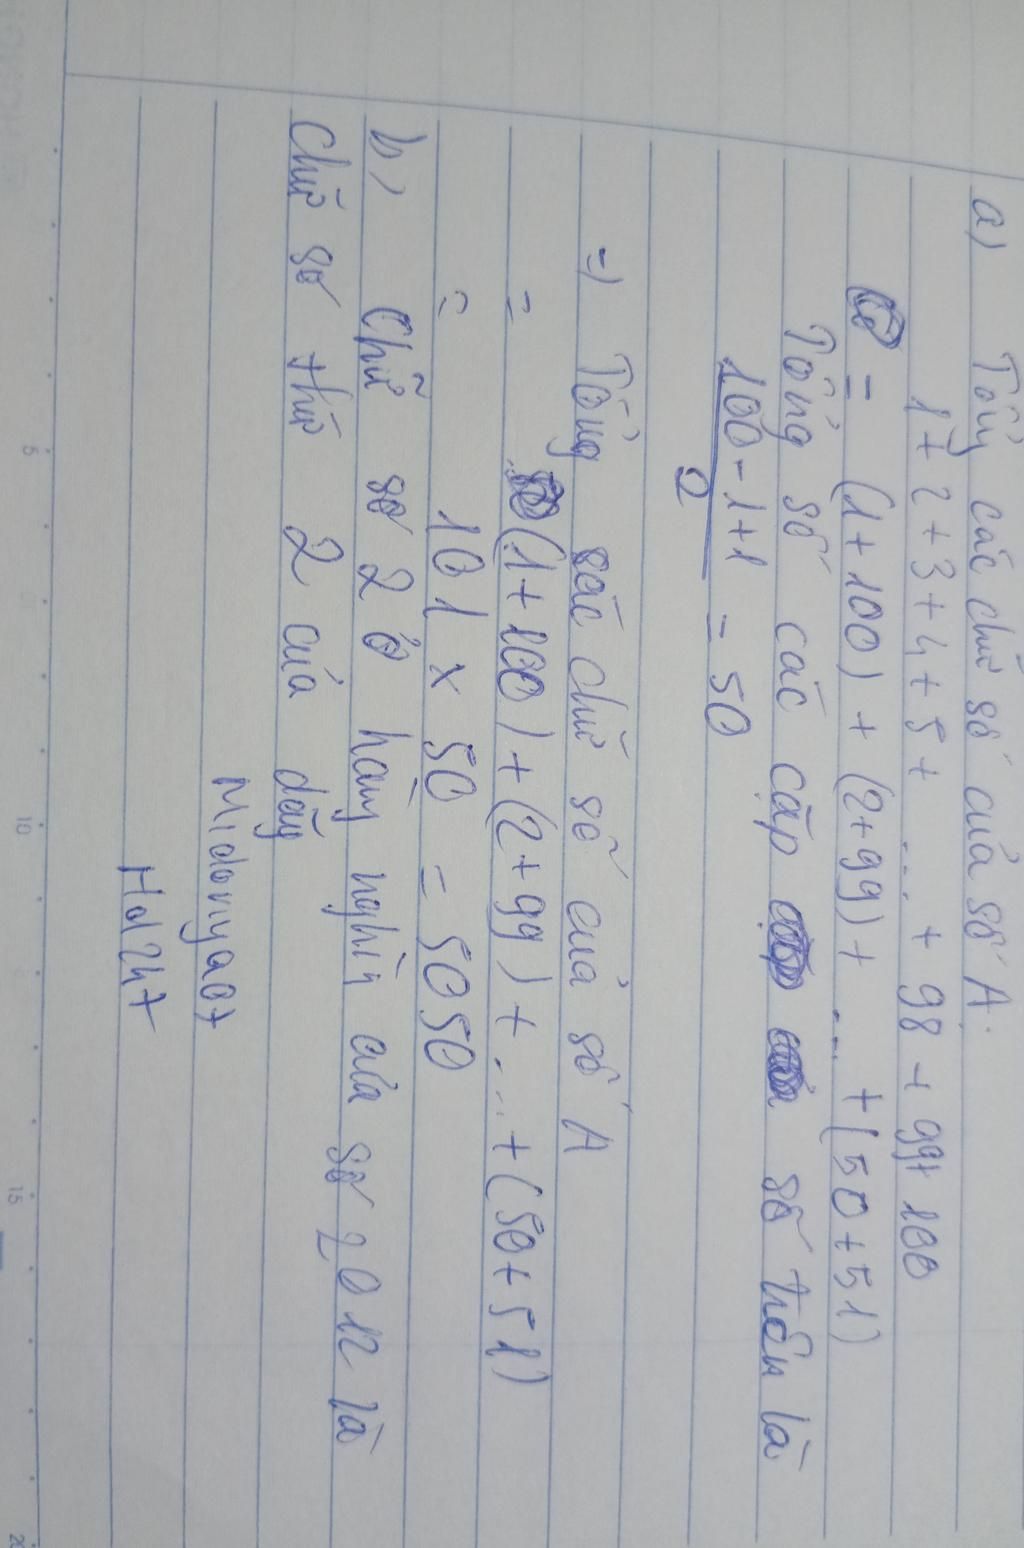 a) Tổng các chữ số của số A.
1 + 2 + 3 + 4 + 5 + ... + 98 + 99 + 100
= (1 + 100) + (2 + 99) + ... + (50 + 51)
Tổng số các cặp số trên là
100 - 1 + 1 / 2 = 50
=) Tổng các chữ số của số A
= (1 + 100) + (2 + 99) + ... + (50 + 51)
= 101 x 50 = 5050
b) Chữ số 2 ở hàng nghìn của số 2012 là
Chữ số thứ 2 của dãy
Midonya07
Hd247
5
10
15
20